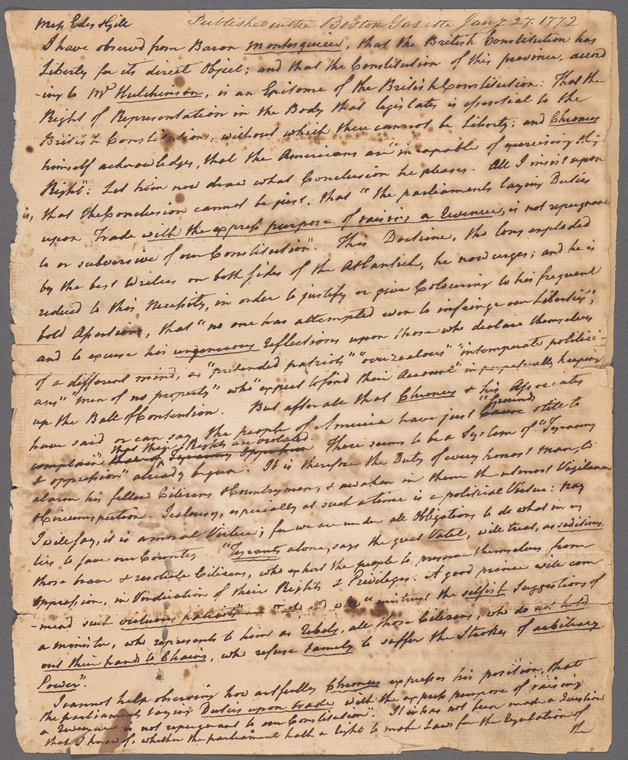 Mess Edes & Gill Published in the Boston Gazette Jany 27. 1772
I have observed from Baron Montesquieu, that the British Constitution has
Liberty for its direct Object; and that the Constitution of this province, accord
-ing to Mr Hutchinson, is an Epitome of the British Constitution: That the
Right of Representation in the Body that legislates is essential to the
British Constitution, without which there cannot be Liberty; and Chronus
himself acknowledges, that the Americans are "incapable of exercising this
Right": Let him now draw what Conclusion he pleases. All I insist upon
is, that the Conclusion cannot be just, that "the parliaments laying Duties
upon Trade with the express purpose of raising a Revenue, is not repugnant
to or subversive of our Constitution". This Doctrine, tho long exploded
by the best Writers on both sides of the Atlantick, he now urges; and he is
reducd to this Necessity, in order to justify or give Colouring to his frequent
bold Assertions, that "no one has attempted even to infringe our Liberties",
and to excuse his ungenerous Reflections upon those who declare themselves
of a different mind, as "pretended patriots" "overzealous" "intemperate politici-
ans" "men of no property" who "expect to find their Account" in perpetually keeping
up the Ball of Contention. But after all that Chronus & his Associates
have said or can say, the people of America have just Ground still to
complain that their Rights are violated. There seems to be a System of "Tyranny
& oppression" already begun. It is therefore the Duty of every honest man, to
alarm his fellow Citizens & Countrymen, & awaken in them the utmost Vigilance
& Circumspection. Jealousy, especially at such a time is a political Virtue: Nay
I will say, it is a moral Virtue; for we are under all Obligations to do what in us
lies to save our Country. "Tyrants alone, says the great Vatel, will treat, as seditious
those brave & resolute Citizens, who exhort the people to preserve themselves from
oppression, in Vindication of their Rights & Privileges: A good prince will com
-mend such virtuous patriots" and will "mistrust the selfish suggestions of
a minister, who represents to him as Rebels, all those Citizens, who do not hold
out their hands to Chains, who refuse tamely to suffer the Strokes of arbitrary
Power".
I cannot help observing how artfully Chronus expresses his position, that
the parliaments laying Duties upon trade with the express purpose of raising
a Revenue is not repugnant to our Constitution". It has not been made a Question
that I know of, whether the parliament hath a right to make Laws for the Regulation of
the